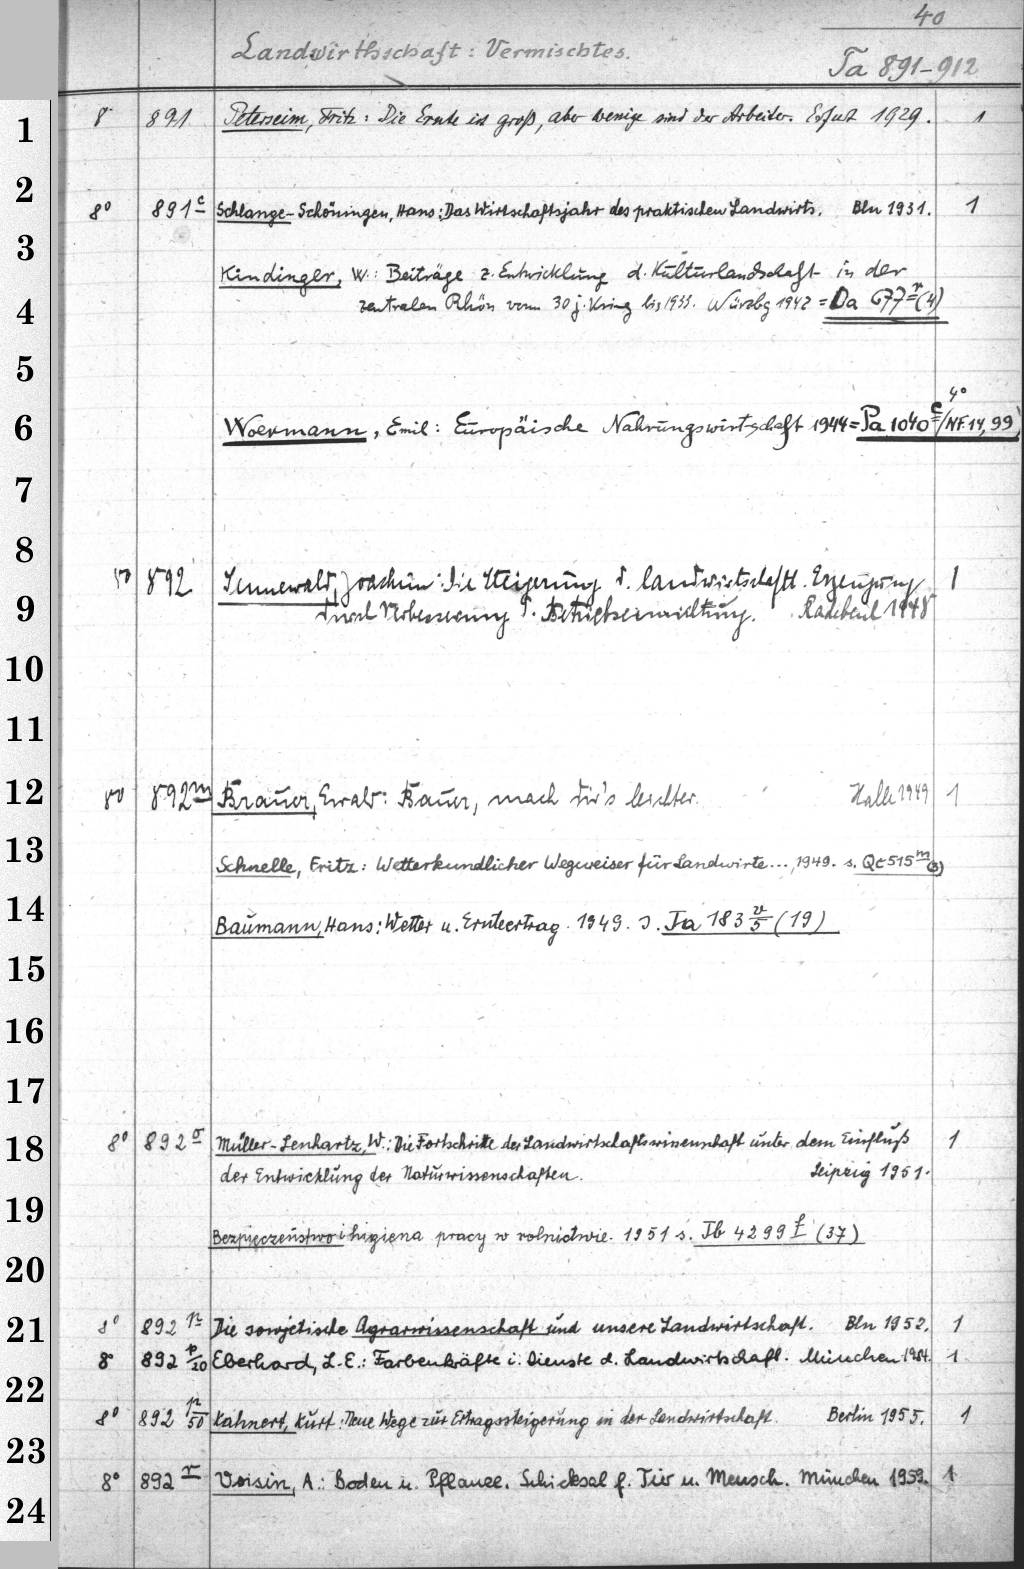 40
Landwirthschaft: Vermischtes.
Ta 891-912
1
8° 891 Peterseim, Fritz: Die Ernte ist groß, aber wenige sind der Arbeiter. Erfurt 1929. 1
2
8° 891c Schlange-Schöningen, Hans: Das Wirtschaftsjahr des praktischen Landwirts. Bln 1931. 1
3
Kindinger, W.: Beiträge z. Entwicklung d. Kulturlandschaft in der
4
zentralen Rhön vom 30j. Krieg bis 1933. Würzbg 1942 = Da 677r(4)
5
4°
6
Woermann, Emil: Europäische Nahrungswirtschaft 1944 = Pa 1040c/NF.14,99
7
8
8° 892 Sennewald, Joachim: Die Steigerung d. landwirtschaftl. Erzeugung 1
9
durch Verbesserung d. Betriebsermittlung. Radebeul 1948
10
11
12
8° 892m Brauer, Ewald: Bauer, mach dir's leichter. Halle 1949 1
13
Schnelle, Fritz: Wetterkundlicher Wegweiser für Landwirte..., 1949. s. Qc 515m(3)
14
Baumann, Hans: Wetter u. Ernteertrag. 1949. s. Ta 183 v/5 (19)
15
16
17
18
8° 892o Müller-Lenhartz, W.: Die Fortschritte der Landwirtschaftswissenschaft unter dem Einfluß 1
der Entwicklung der Naturwissenschaften. Leipzig 1951.
19
Bezpieczeństwo i higiena pracy w rolnictwie. 1951 s. Tb 4299f (37)
20
21
8° 892p Die sowjetische Agrarwissenschaft und unsere Landwirtschaft. Bln 1952. 1
8° 892p/20 Eberhard, L.E.: Farbenkräfte i. Dienste d. Landwirtschaft. München 1954. 1
22
8° 892p/50 Kahnert, Kurt: Neue Wege zur Ertragssteigerung in der Landwirtschaft. Berlin 1955. 1
23
8° 892r Voisin, A.: Boden u. Pflanze. Schicksal f. Tier u. Mensch. München 1959. 1
24